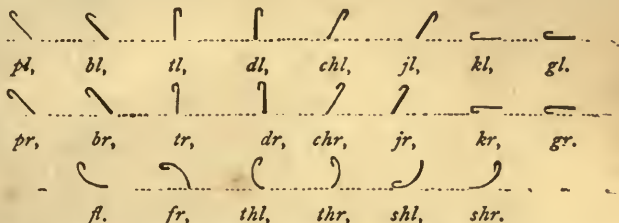 pl, bl, tl, dl, chl, jl, kl, gl.
pr, br, tr, dr, chr, jr, kr, gr.
fl. fr, thl, thr, shl, shr.